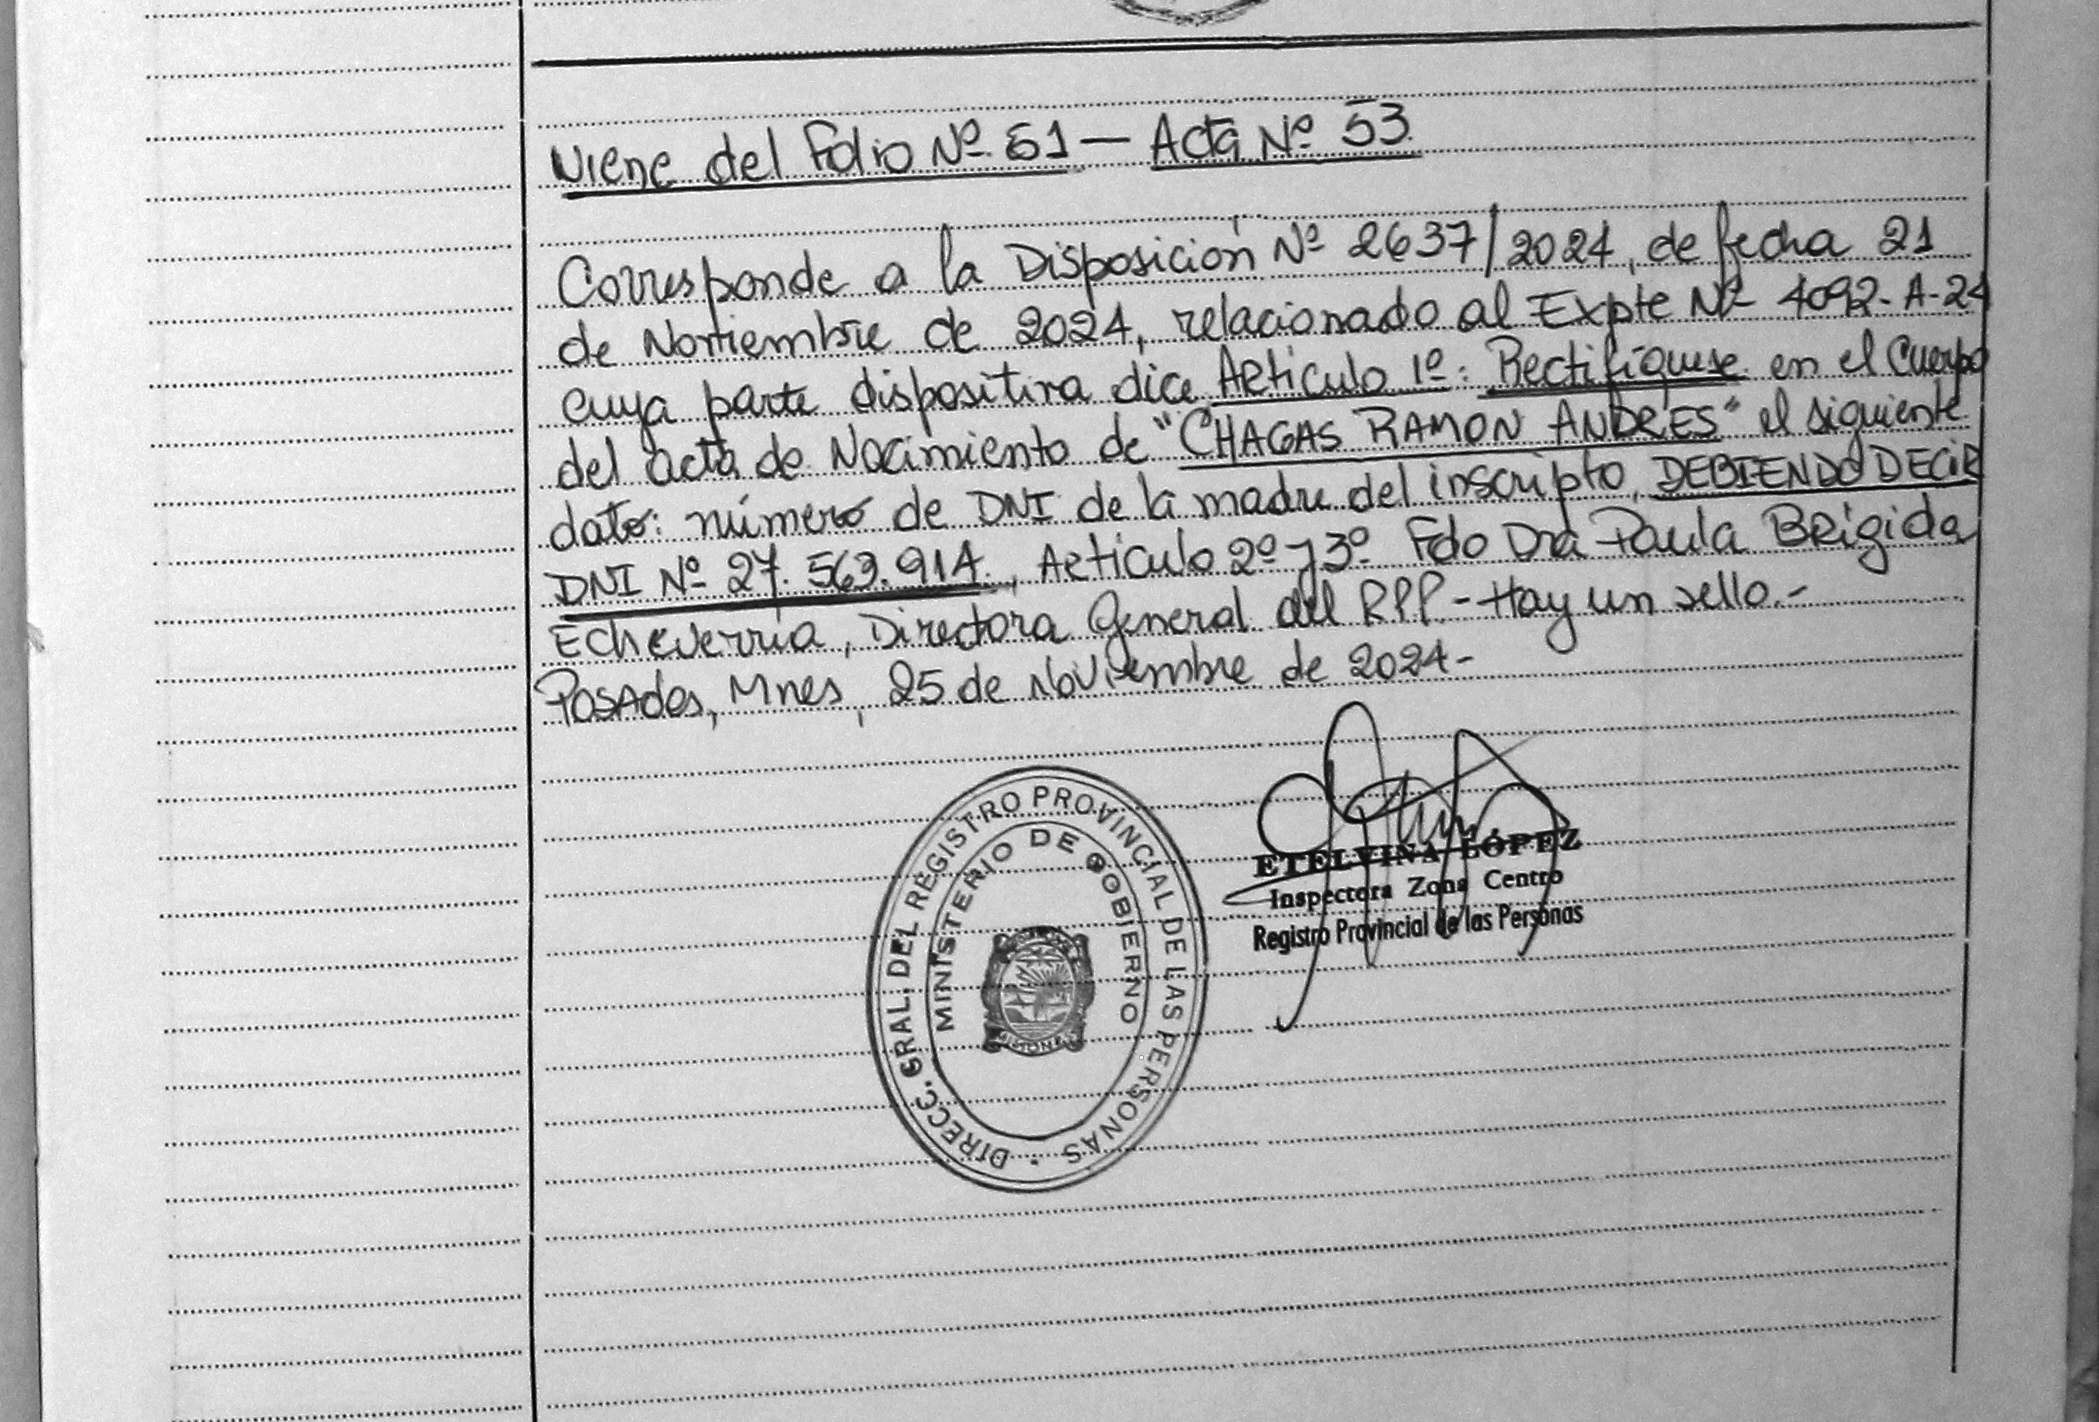 Viene del Folio Nº 51 — Acta Nº 53
Corresponde a la Disposición Nº 2637/2024, de fecha 21
de Noviembre de 2024, relacionado al Expte Nº 4092-A-24
cuya parte dispositiva dice Artículo 1º: Rectifíquese en el Cuerpo
del acta de Nacimiento de "CHAGAS RAMON ANDRES" el siguiente
dato: número de DNI de la madre del inscripto, DEBIENDO DECIR
DNI Nº 27.563.914., Artículo 2º y 3º Fdo Dra Paula Brígida
Echeverría, Directora General del RPP - Hay un sello.-
Posadas, Mnes, 25 de noviembre de 2024-
DIRECC. GRAL. DEL REGISTRO PROVINCIAL DE LAS PERSONAS
MINISTERIO DE GOBIERNO
MISIONES
ETELVINA LÓPEZ
Inspectora Zona Centro
Registro Provincial de las Personas